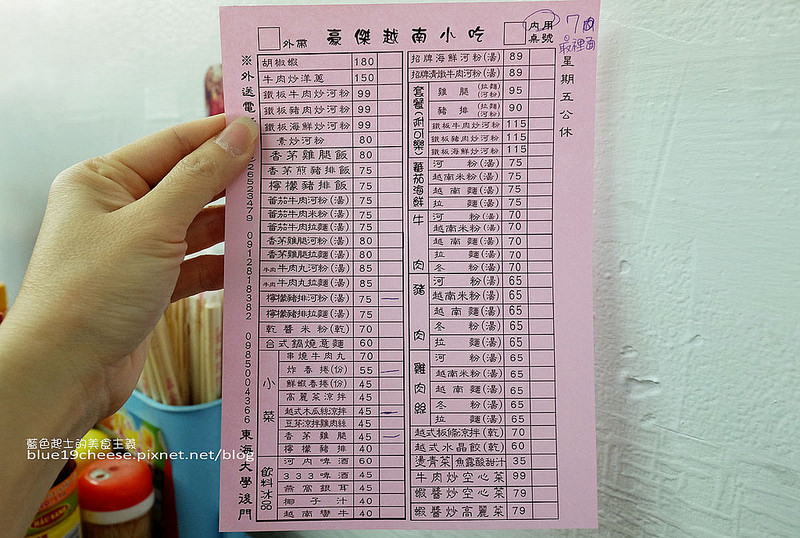 外帶 豪傑越南小吃 內用 7肉
桌號 最裡面
星期五公休
胡椒蝦 180
牛肉炒洋蔥 150
鐵板牛肉炒河粉 99
鐵板豬肉炒河粉 99
鐵板海鮮炒河粉 99
素炒河粉 80
香茅雞腿飯 80
香茅煎豬排飯 75
檸檬豬排飯 75
蕃茄牛肉河粉(湯) 75
蕃茄牛肉米粉(湯) 75
蕃茄牛肉拉麵(湯) 75
香茅雞腿河粉(湯) 80
香茅雞腿拉麵(湯) 80
牛肉牛肉丸河粉(湯) 85
牛肉牛肉丸拉麵(湯) 85
檸檬豬排河粉(湯) 75
檸檬豬排拉麵(湯) 75
乾醬米粉(乾) 70
台式鍋燒意麵 60
小菜
串燒牛肉丸 70
炸春捲(份) 55
鮮蝦春捲(份) 45
高麗菜涼拌 45
越式木瓜絲涼拌 45
豆芽涼拌雞肉絲 45
香茅雞腿 45
檸檬豬排 40
飲料冰品
河內啤酒 60
333啤酒 45
燕窩銀耳 45
椰子汁 40
越南彎牛 40
招牌海鮮河粉(湯) 89
招牌清燉牛肉河粉(湯) 89
套餐(附可樂)
雞腿(拉麵)(河粉) 95
豬排(拉麵)(河粉) 90
鐵板牛肉炒河粉 115
鐵板豬肉炒河粉 115
鐵板海鮮炒河粉 115
蕃茄海鮮
河粉(湯) 75
越南米粉(湯) 75
越南麵(湯) 75
拉麵(湯) 75
牛肉
河粉(湯) 70
越南米粉(湯) 70
越南麵(湯) 70
拉麵(湯) 70
冬粉(湯) 70
豬肉
河粉(湯) 65
越南米粉(湯) 65
越南麵(湯) 65
冬粉(湯) 65
拉麵(湯) 65
雞肉絲
河粉(湯) 65
越南米粉(湯) 65
越南麵(湯) 65
冬粉(湯) 65
拉麵(湯) 65
越式板條涼拌(乾) 70
越式水晶餃(乾) 60
燙青菜 魚露酸甜汁 35
牛肉炒空心菜 99
蝦醬炒空心菜 79
蝦醬炒高麗菜 79
※外送電
26523479 0912818382 0985004366 東海大學後門
藍色起士的美食主義
blue19cheese.pixnet.net/blog